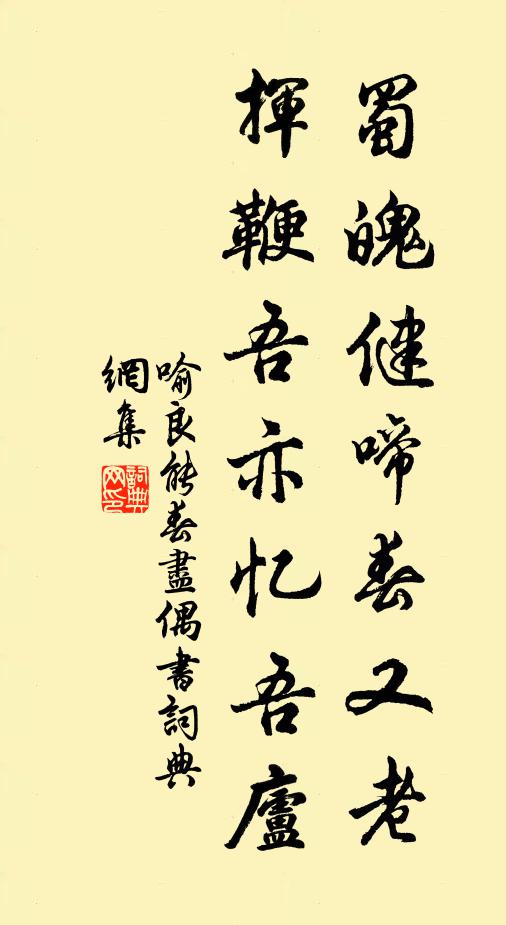 蜀魄健啼春又老
揮鞭吾亦忆吾廬
喻良能春盡偶書詞典
網集
詞典網印